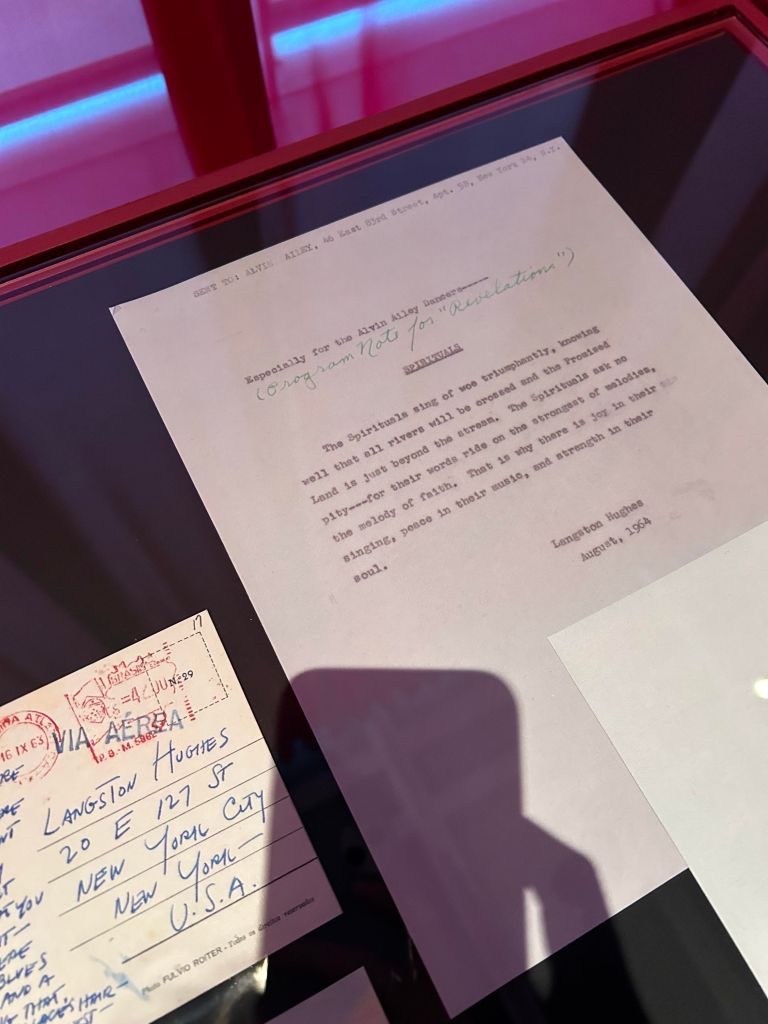 SENT TO: ALVIN AILEY, 46 East 83rd Street, Apt. 5B, New York 28, N.Y.
Especially for the Alvin Ailey Dancers-----
(Program Note for "Revelations")
SPIRITUALS
The Spirituals sing of woe triumphantly, knowing
well that all rivers will be crossed and the Promised
Land is just beyond the stream. The Spirituals ask no
pity---for their words ride on the strongest of melodies,
the melody of faith. That is why there is joy in their
singing, peace in their music, and strength in their
soul.
Langston Hughes
August, 1964
17
BRASIL
№29
16 IX 63
VIA AÉREA
LANGSTON HUGHES
20 E 127 ST
NEW YORK CITY
NEW YORK—
U.S.A.
YOU
BLUES
AND A
THAT,
HAIR—
Photo FULVIO ROITER - Todos os direitos reservados